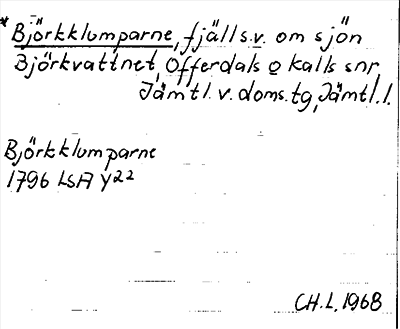 *Björkklumparne, fjäll s.v. om sjön
Björkvattnet, Offerdals o kalls snr,
Jämtl. v. doms. tg, Jämtl. l.
Björkklumparne
1796 LSA Y²²
CH.L, 1968